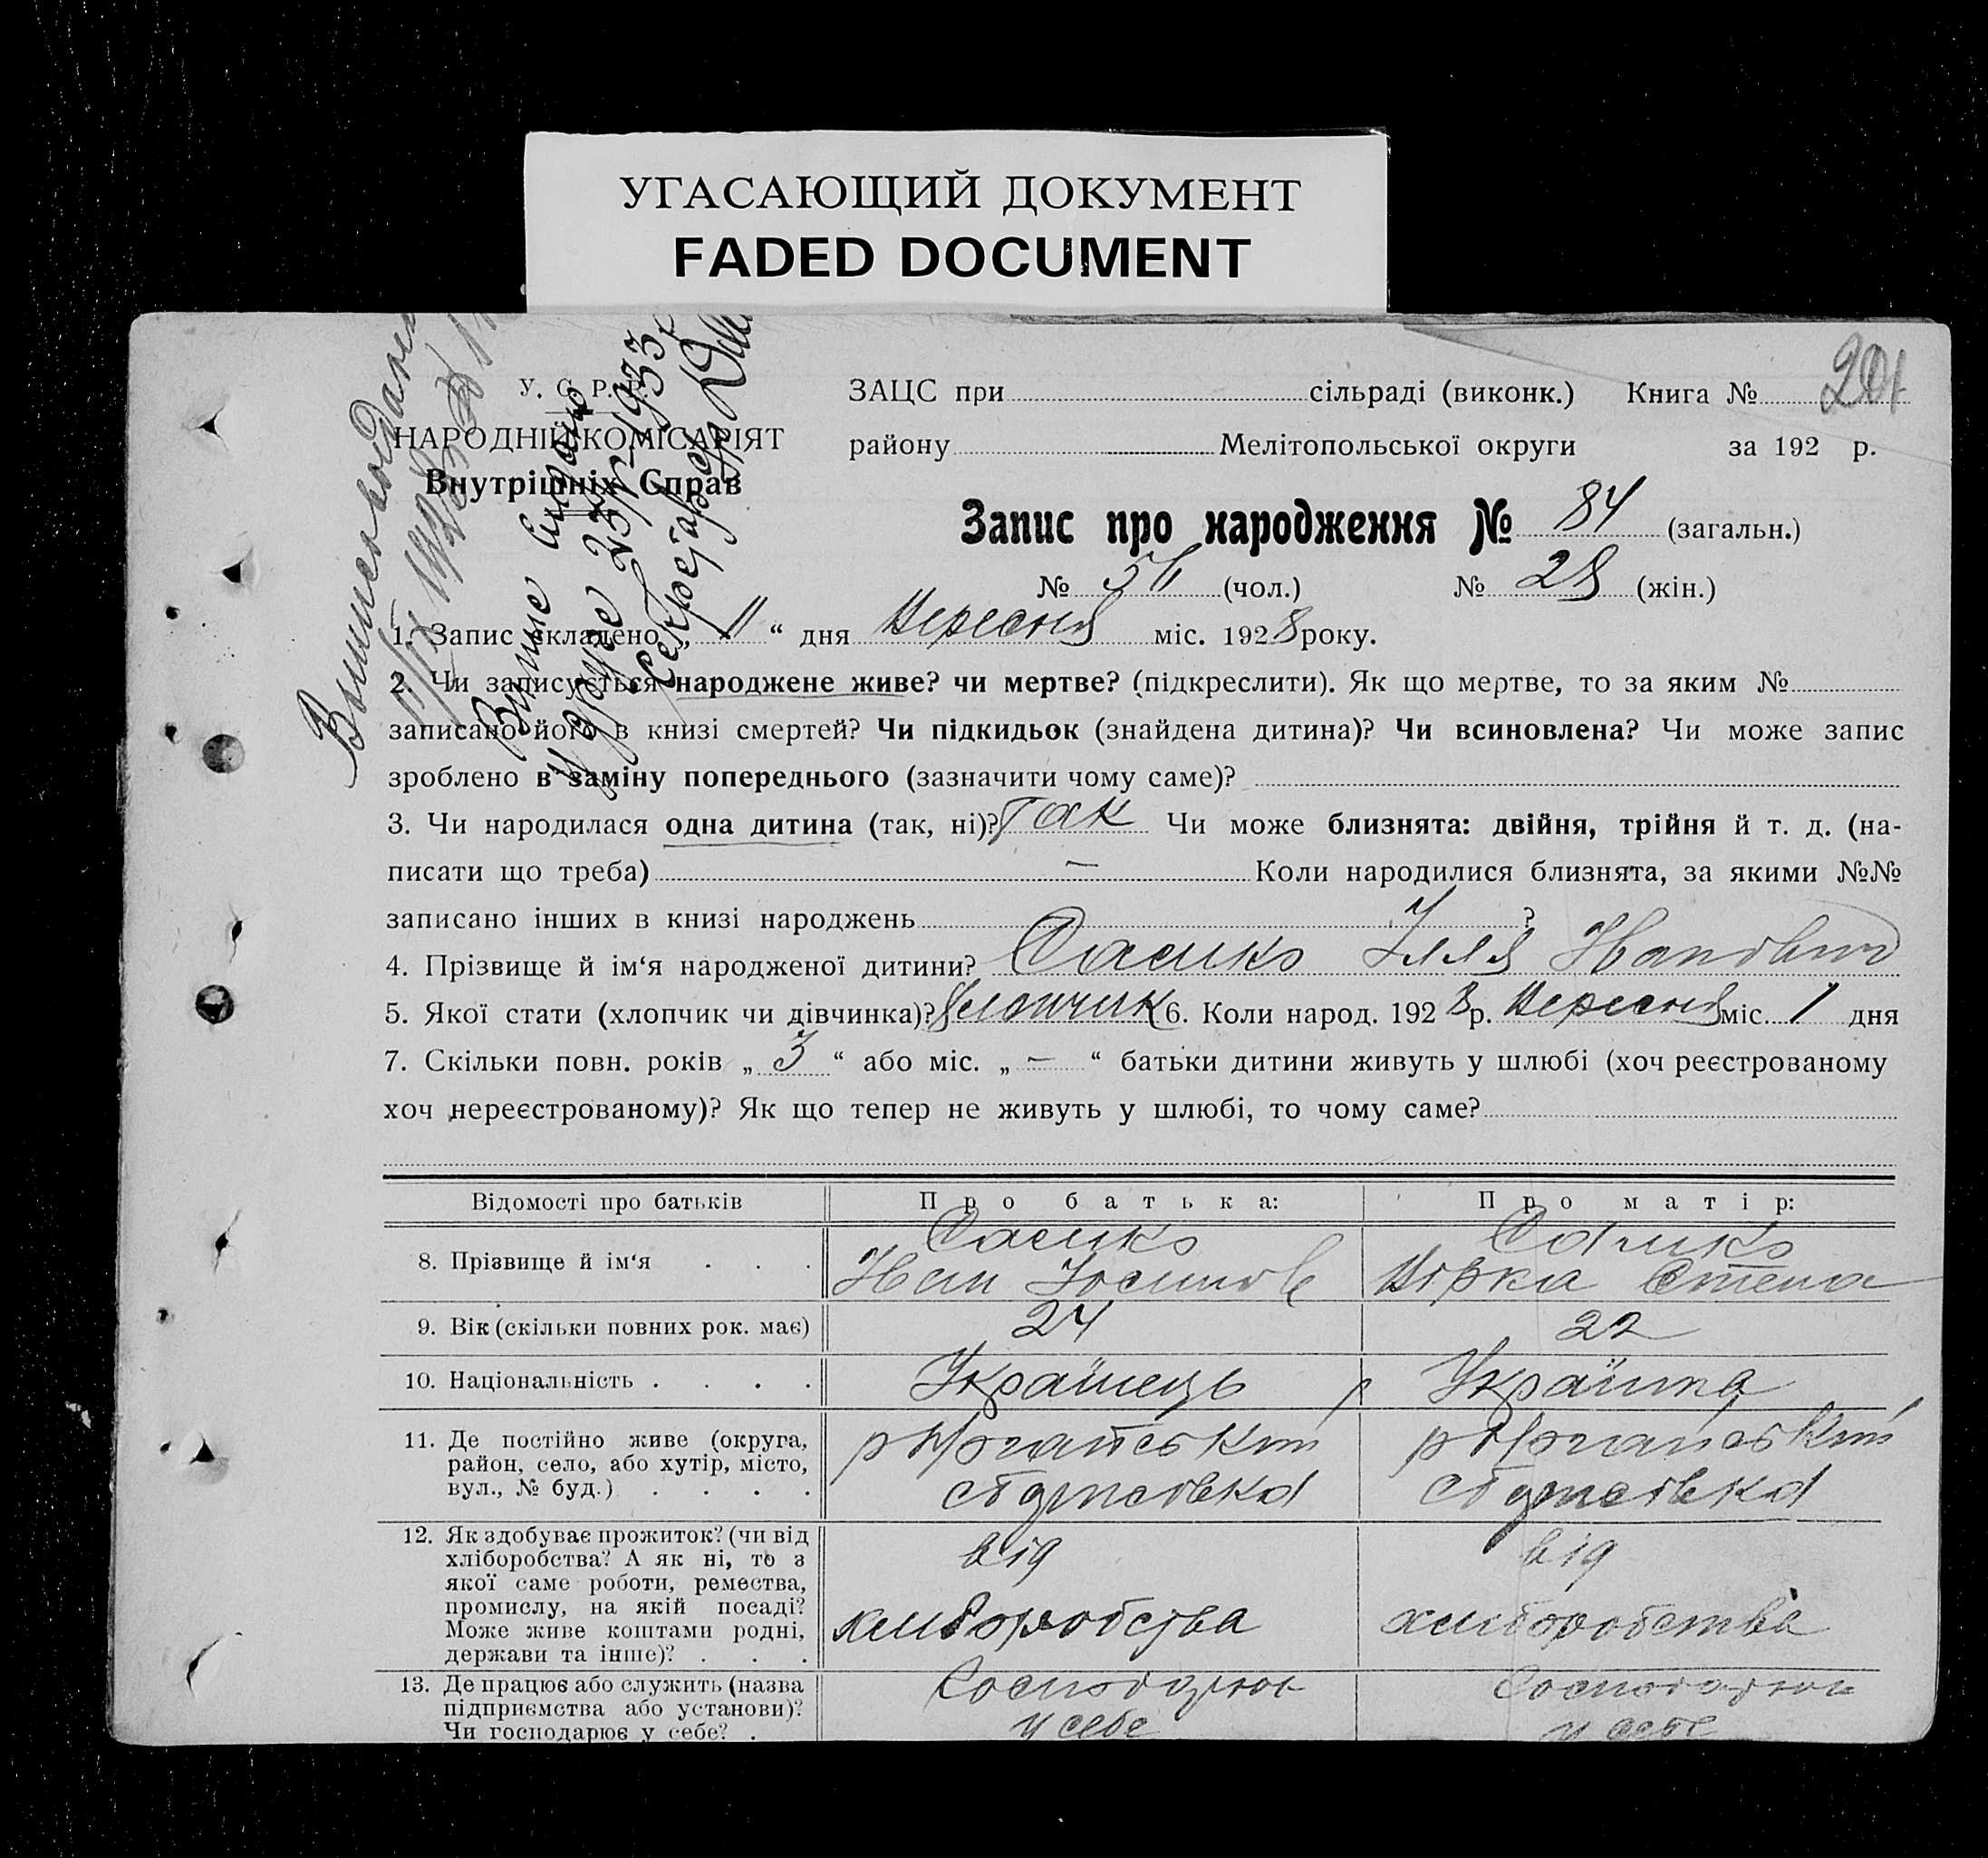 УГАСАЮЩИЙ ДОКУМЕНТ
FADED DOCUMENT
201
У. С. Р. Р.
НАРОДНІЙ КОМІСАРІЯТ
Внутрішніх Справ
ЗАЦС при сільраді (виконк.) Книга №
району Мелітопольської округи за 192 р.
Запис про народження № 84 (загальн.)
№ 56 (чол.) № 28 (жін.)
1. Запис складено „ 11 “ дня Вересня міс. 1928 року.
2. Чи записується народжене живе? чи мертве? (підкреслити). Як що мертве, то за яким №
записано його в книзі смертей? Чи підкидьок (знайдена дитина)? Чи всиновлена? Чи може запис
зроблено в заміну попереднього (зазначити чому саме)?
3. Чи народилася одна дитина (так, ні)? Так Чи може близнята: двійня, трійня й т. д. (на-
писати що треба) — Коли народилися близнята, за якими №№
записано інших в книзі народжень ?
4. Прізвище й ім‘я народженої дитини? Сасико Ілля Иванович
5. Якої стати (хлопчик чи дівчинка)? Хлопчик 6. Коли народ. 1928 р. Вересня міс. 1 дня
7. Скільки повн. років „ 3 “ або міс. „ — “ батьки дитини живуть у шлюбі (хоч реєстрованому
хоч нереєстрованому)? Як що тепер не живуть у шлюбі, то чому саме?
Відомості про батьків Про батька: Про матір:
8. Прізвище й ім‘я . . . Сасико Сасико
Иван Йосипов Степа
9. Вік (скільки повних рок. має) 24 22
10. Національність . . . . Українець Українка
11. Де постійно живе (округа,
район, село, або хутір, місто,
вул., № буд.) . . . .
12. Як здобуває прожиток? (чи від
хліборобства? А як ні, то з
якої саме роботи, ремества,
промислу, на якій посаді?
Може живе коштами родні,
держави та інше)? . . .
від від
хліборобства хліборобства
13. Де працює або служить (назва
підприємства або установи)?
Чи господарює у себе? .
Господарює Господарює
у себе у себе
Више
23/IV 1933
Секретарь